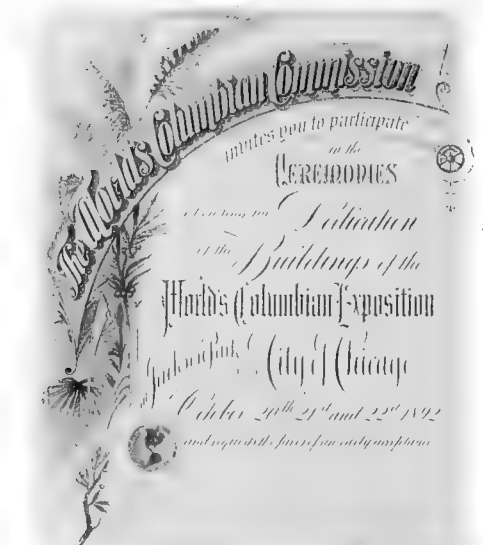 The World's Columbian Commission
invites you to participate
in the
CEREMONIES
attending the Dedication
of the Buildings of the
World's Columbian Exposition
at Jackson Park City of Chicago
October 20th 21st and 22nd 1892
and requests the favor of an early acceptance